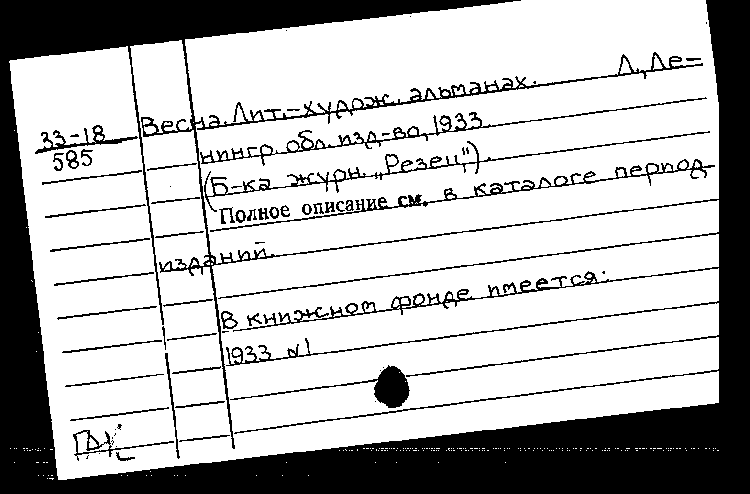 33-18
585
Весна. Лит.-худож. альманах. Л., Ле-
нингр. обл. изд-во, 1933.
(Б-ка журн. „Резец").
Полное описание см. в каталоге период.
изданий.
В книжном фонде имеется:
1933 №1